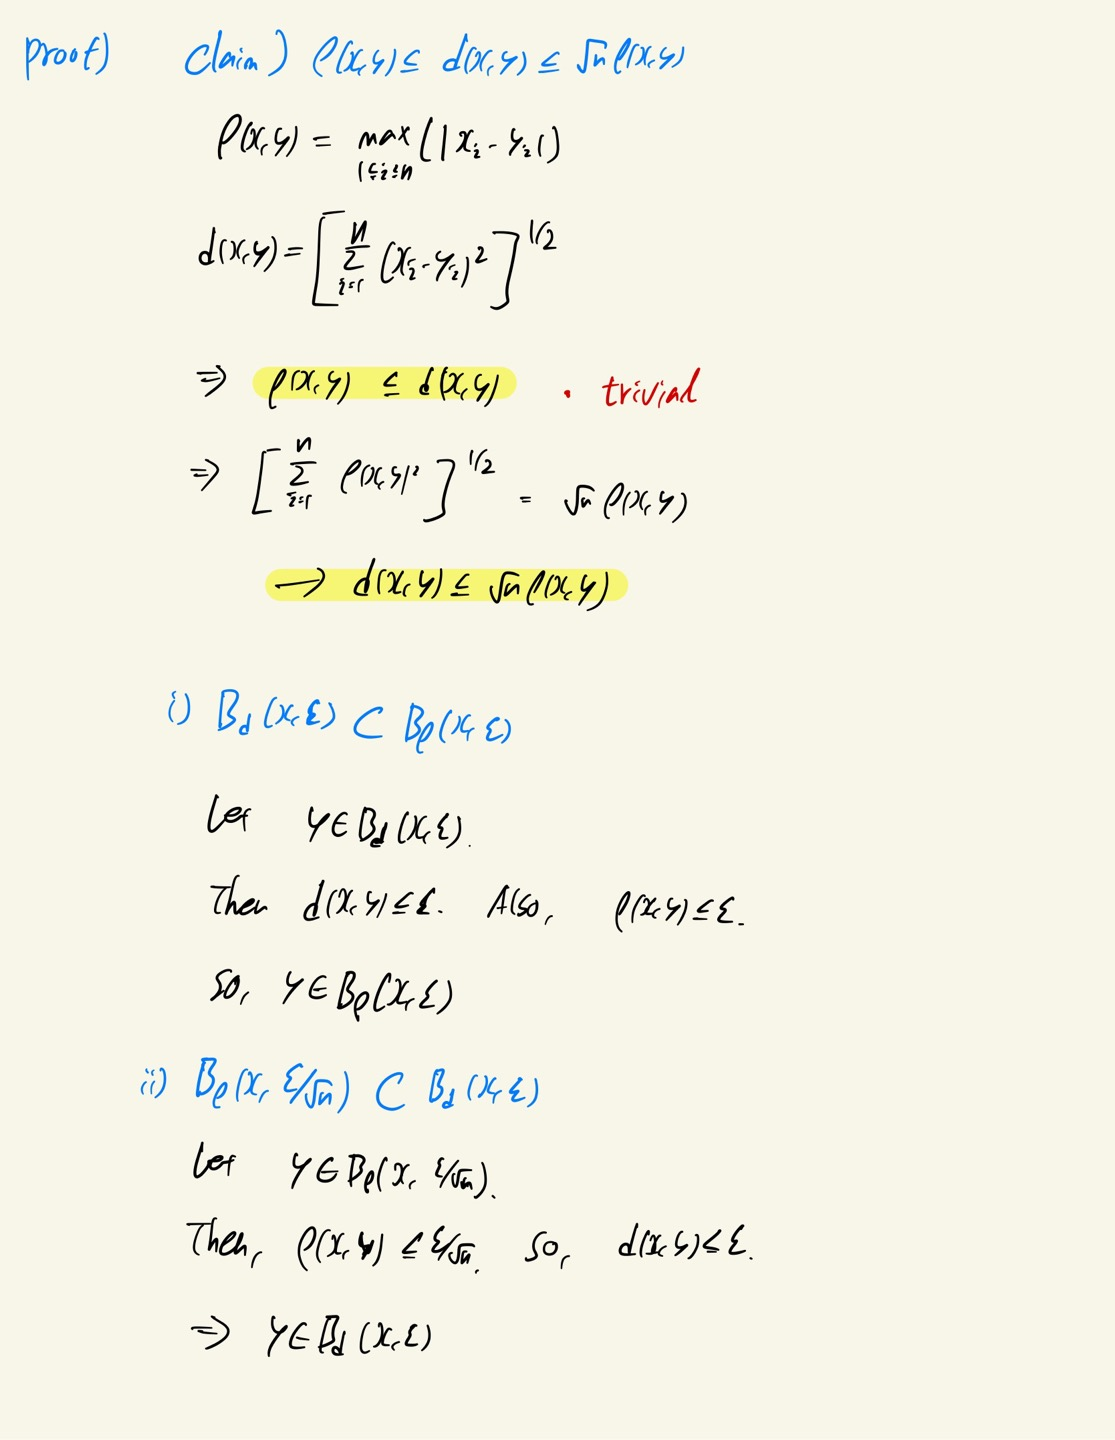 proof) Claim) ρ(x,y) ≤ d(x,y) ≤ √n ρ(x,y)
ρ(x,y) = max (|x_i - y_i|)
1≤i≤n
d(x,y) = [ Σ_{i=1}^{n} (x_i - y_i)^2 ]^{1/2}
⇒ ρ(x,y) ≤ d(x,y) · trivial
⇒ [ Σ_{i=1}^{n} ρ(x,y)^2 ]^{1/2} = √n ρ(x,y)
→ d(x,y) ≤ √n ρ(x,y)
i) B_d(x,ε) ⊂ B_ρ(x,ε)
Let y∈B_d(x,ε).
Then d(x,y) ≤ ε. Also, ρ(x,y) ≤ ε.
So, y∈B_ρ(x,ε)
ii) B_ρ(x, ε/√n) ⊂ B_d(x,ε)
Let y∈B_ρ(x, ε/√n).
Then, ρ(x,y) ≤ ε/√n. So, d(x,y) ≤ ε.
⇒ y∈B_d(x,ε)